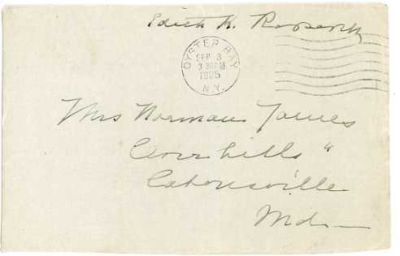 Edith K. Roosevelt
OYSTER BAY
SEP 3
1905
N.Y.
Mrs Norman James
Catonsville
Md.